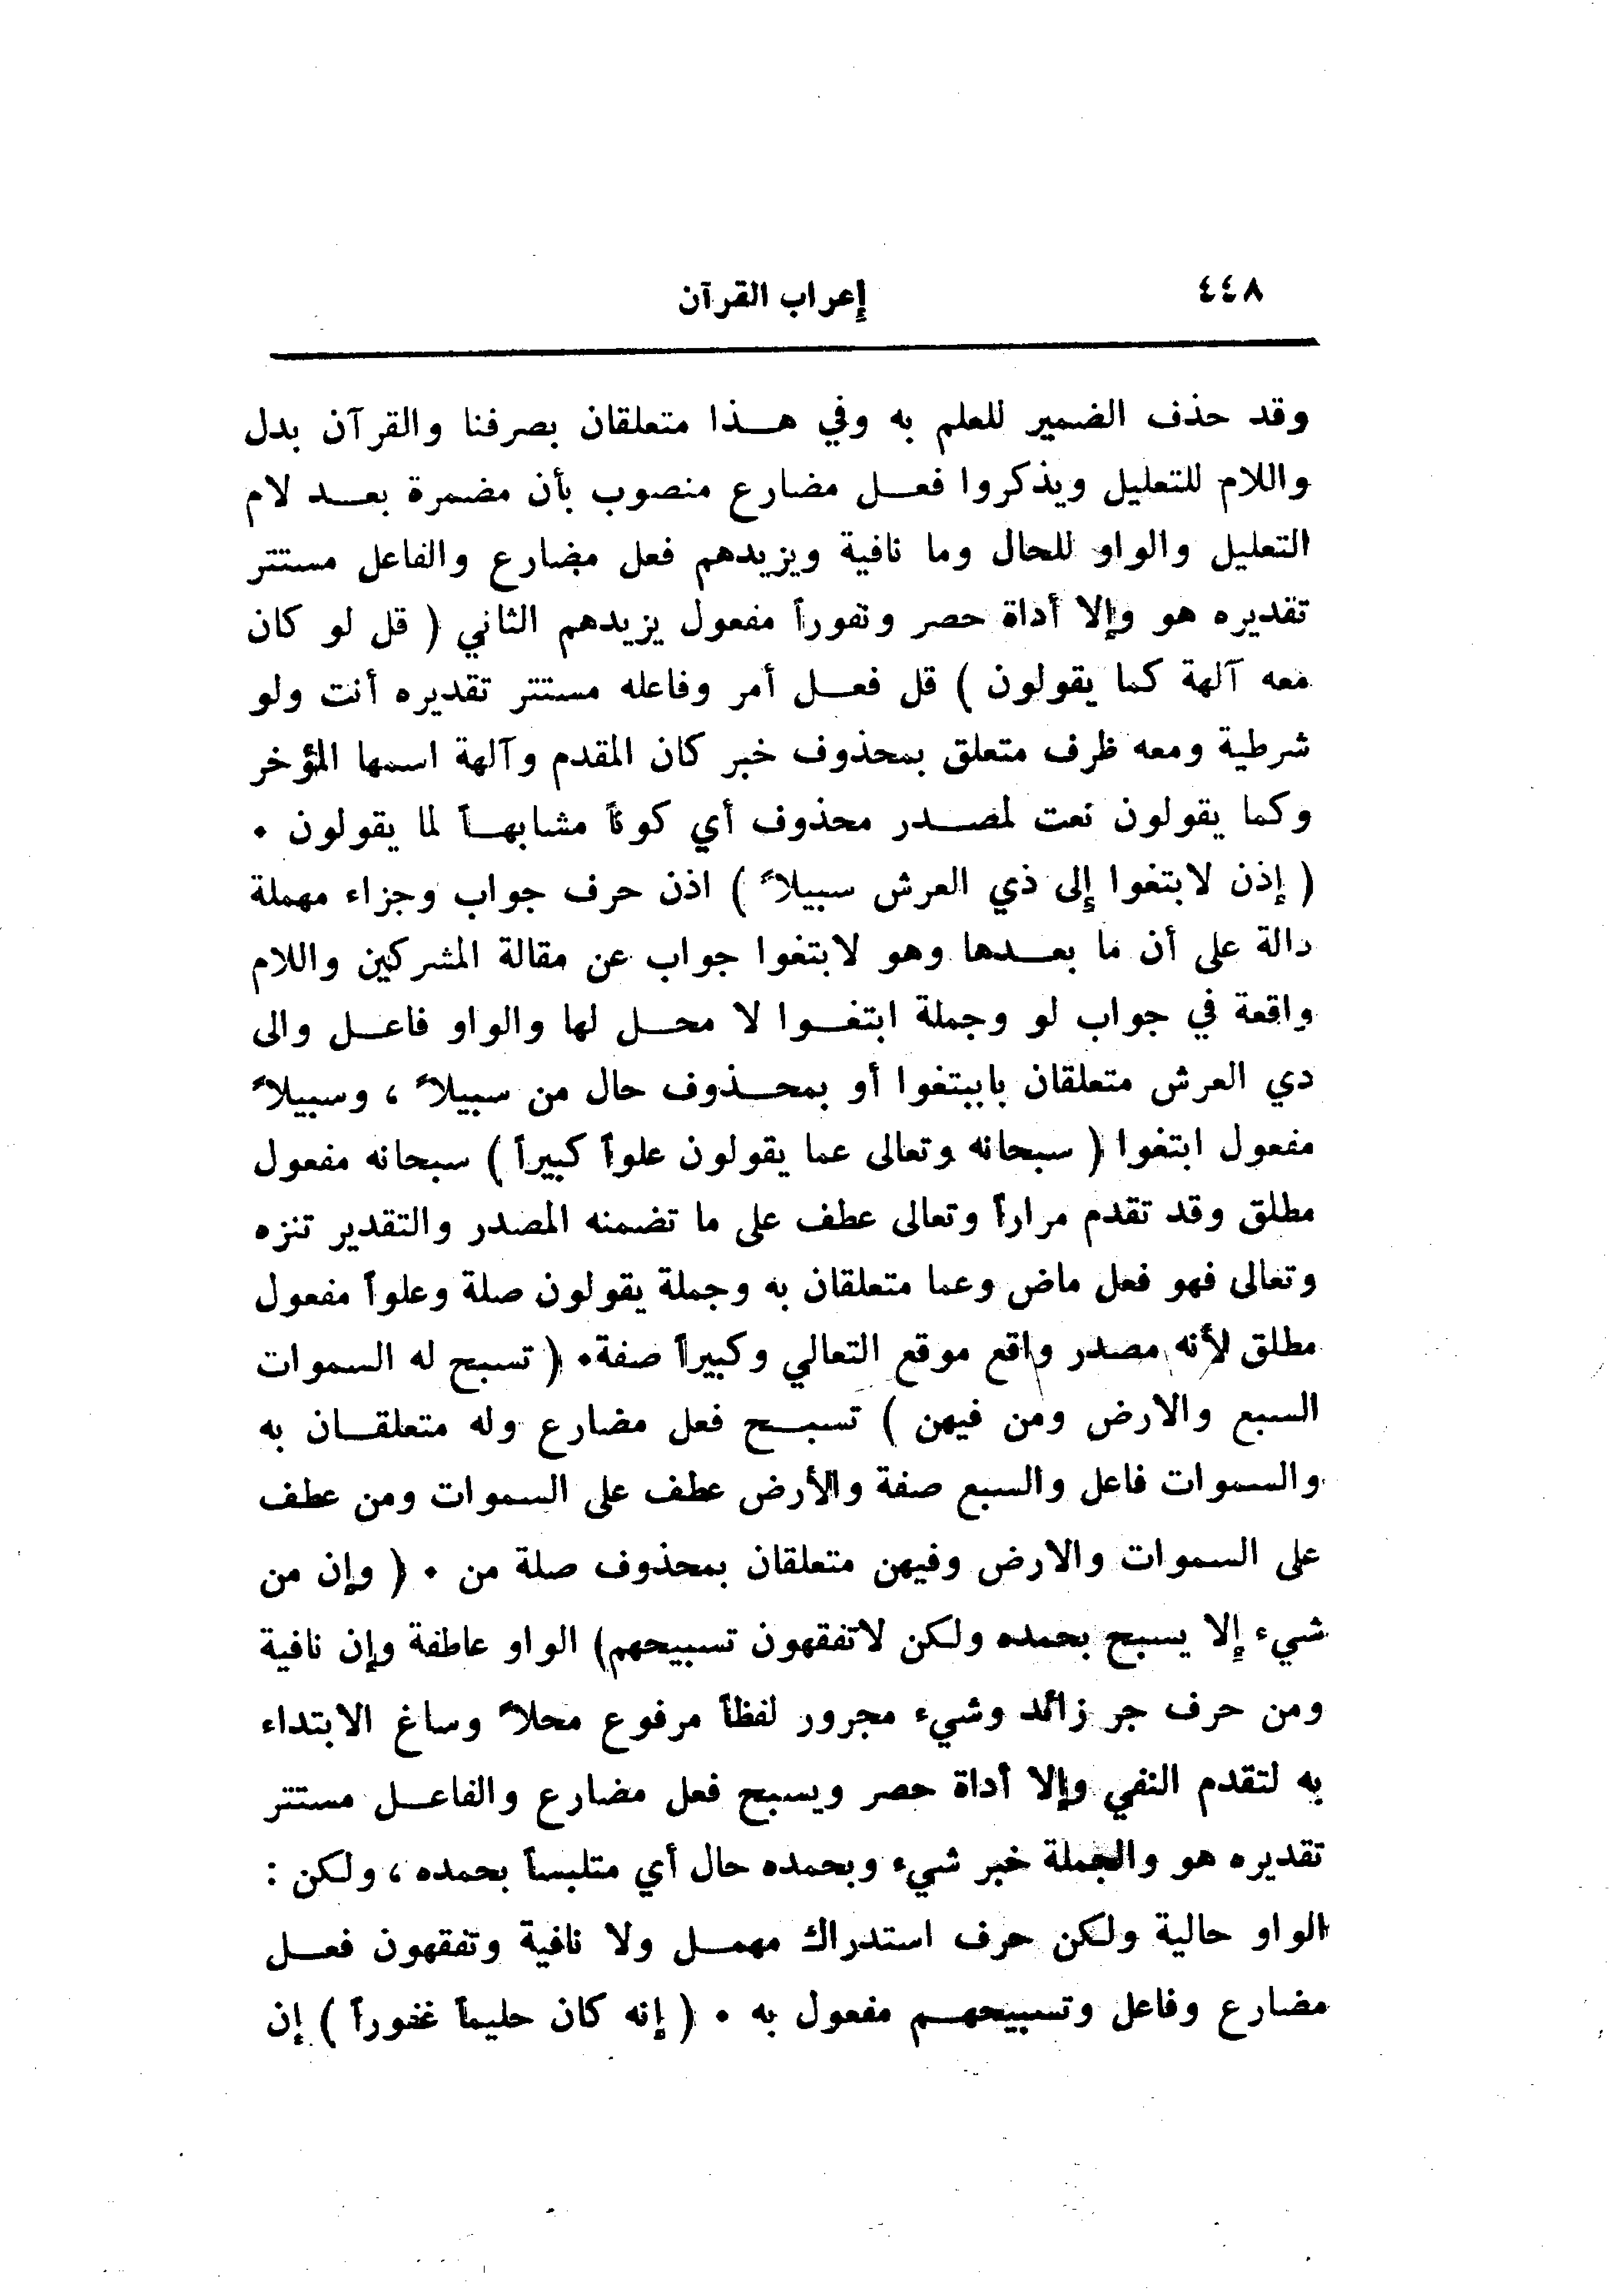 ٤٤٨ إعراب القرآن
وقد حذف الضمير للعلم به وفي هـــذا متعلقان بصرفنا والقرآن بدل
واللام للتعليل ويذكروا فعــل مضارع منصوب بأن مضمرة بعــد لام
التعليل والواو للحال وما نافية ويزيدهم فعل مضارع والفاعل مستتر
تقديره هو وإلا أداة حصر ونفوراً مفعول يزيدهم الثاني ( قل لو كان
معه آلهة كما يقولون ) قل فعــل أمر وفاعله مستتر تقديره أنت ولو
شرطية ومعه ظرف متعلق بمحذوف خبر كان المقدم وآلهة اسمها المؤخر
وكما يقولون نعت لمصــدر محذوف أي كوناً مشابهــاً لما يقولون .
( إذن لابتغوا إلى ذي العرش سبيلاً ) اذن حرف جواب وجزاء مهملة
دالة على أن ما بعــدها وهو لابتغوا جواب عن مقالة المشركين واللام
واقعة في جواب لو وجملة ابتغــوا لا محــل لها والواو فاعــل والى
دي العرش متعلقان باببتغوا أو بمحــذوف حال من سبيلاً ، وسبيلاً
مفعول ابتغوا ( سبحانه وتعالى عما يقولون علواً كبيراً ) سبحانه مفعول
مطلق وقد تقدم مراراً وتعالى عطف على ما تضمنه المصدر والتقدير تنزه
وتعالى فهو فعل ماض وعما متعلقان به وجملة يقولون صلة وعلواً مفعول
مطلق لأنه مصدر واقع موقع التعالي وكبيراً صفة. ( تسبح له السموات
السبع والارض ومن فيهن ) تسبــح فعل مضارع وله متعلقــان به
والسموات فاعل والسبع صفة والأرض عطف على السموات ومن عطف
على السموات والارض وفيهن متعلقان بمحذوف صلة من . ( وإن من
شيء إلا يسبح بحمده ولكن لاتفقهون تسبيحهم) الواو عاطفة وإن نافية
ومن حرف جر زائد وشيء مجرور لفظاً مرفوع محلاً وساغ الابتداء
به لتقدم النفي وإلا أداة حصر ويسبح فعل مضارع والفاعــل مستتر
تقديره هو والجملة خبر شيء وبحمده حال أي متلبساً بحمده ، ولكن :
الواو حالية ولكن حرف استدراك مهمــل ولا نافية وتفقهون فعــل
مضارع وفاعل وتسبيحهــم مفعول به . ( إنه كان حليماً غفوراً ) إن